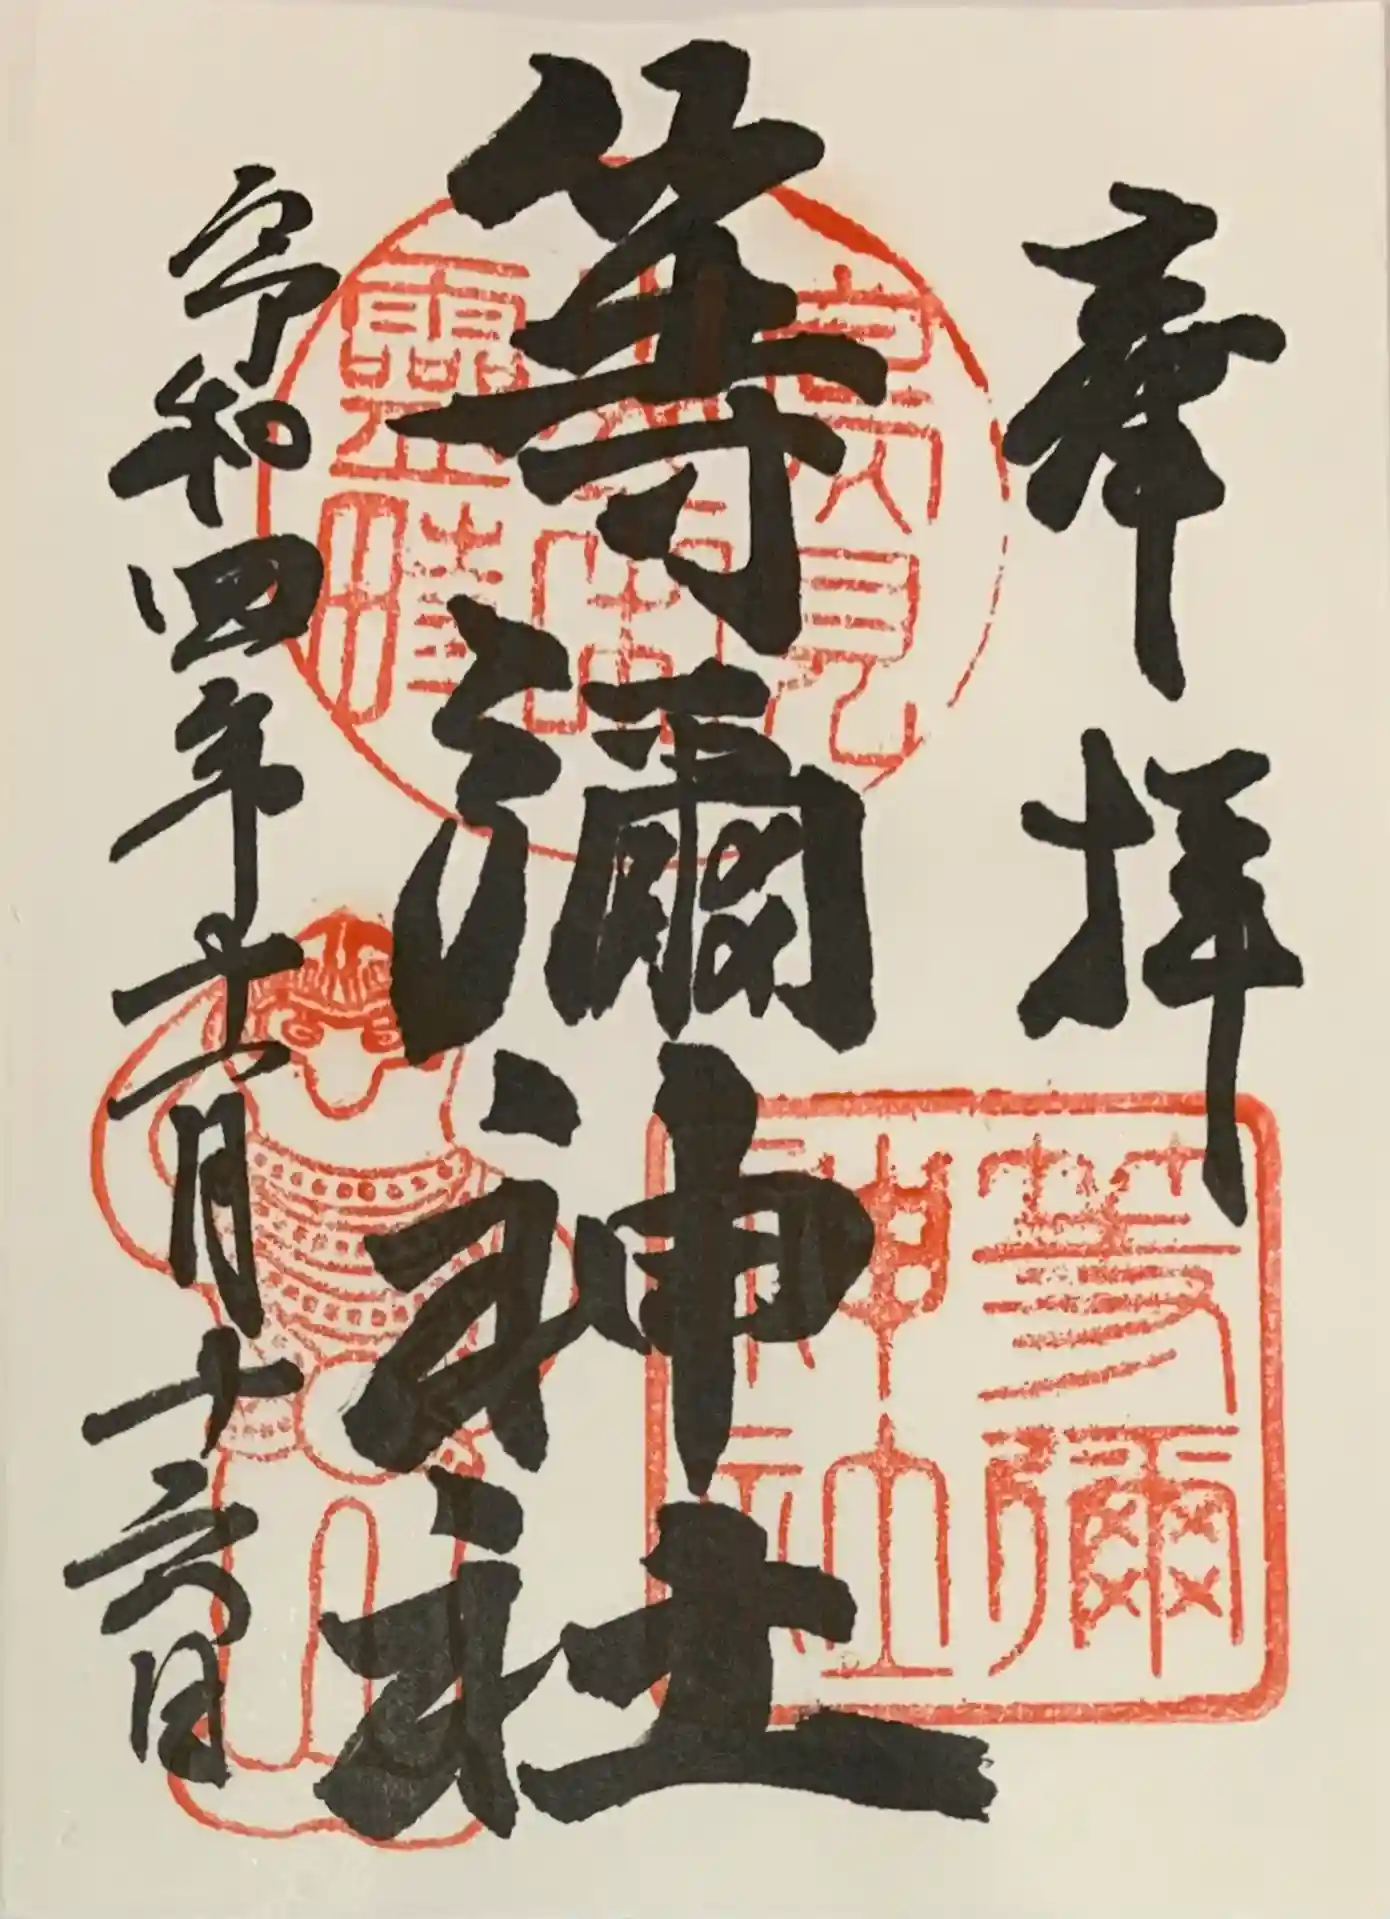 奉拝
等彌神社
令和四年十一月十六日
鳥見
山中
靈畤
等彌
神社